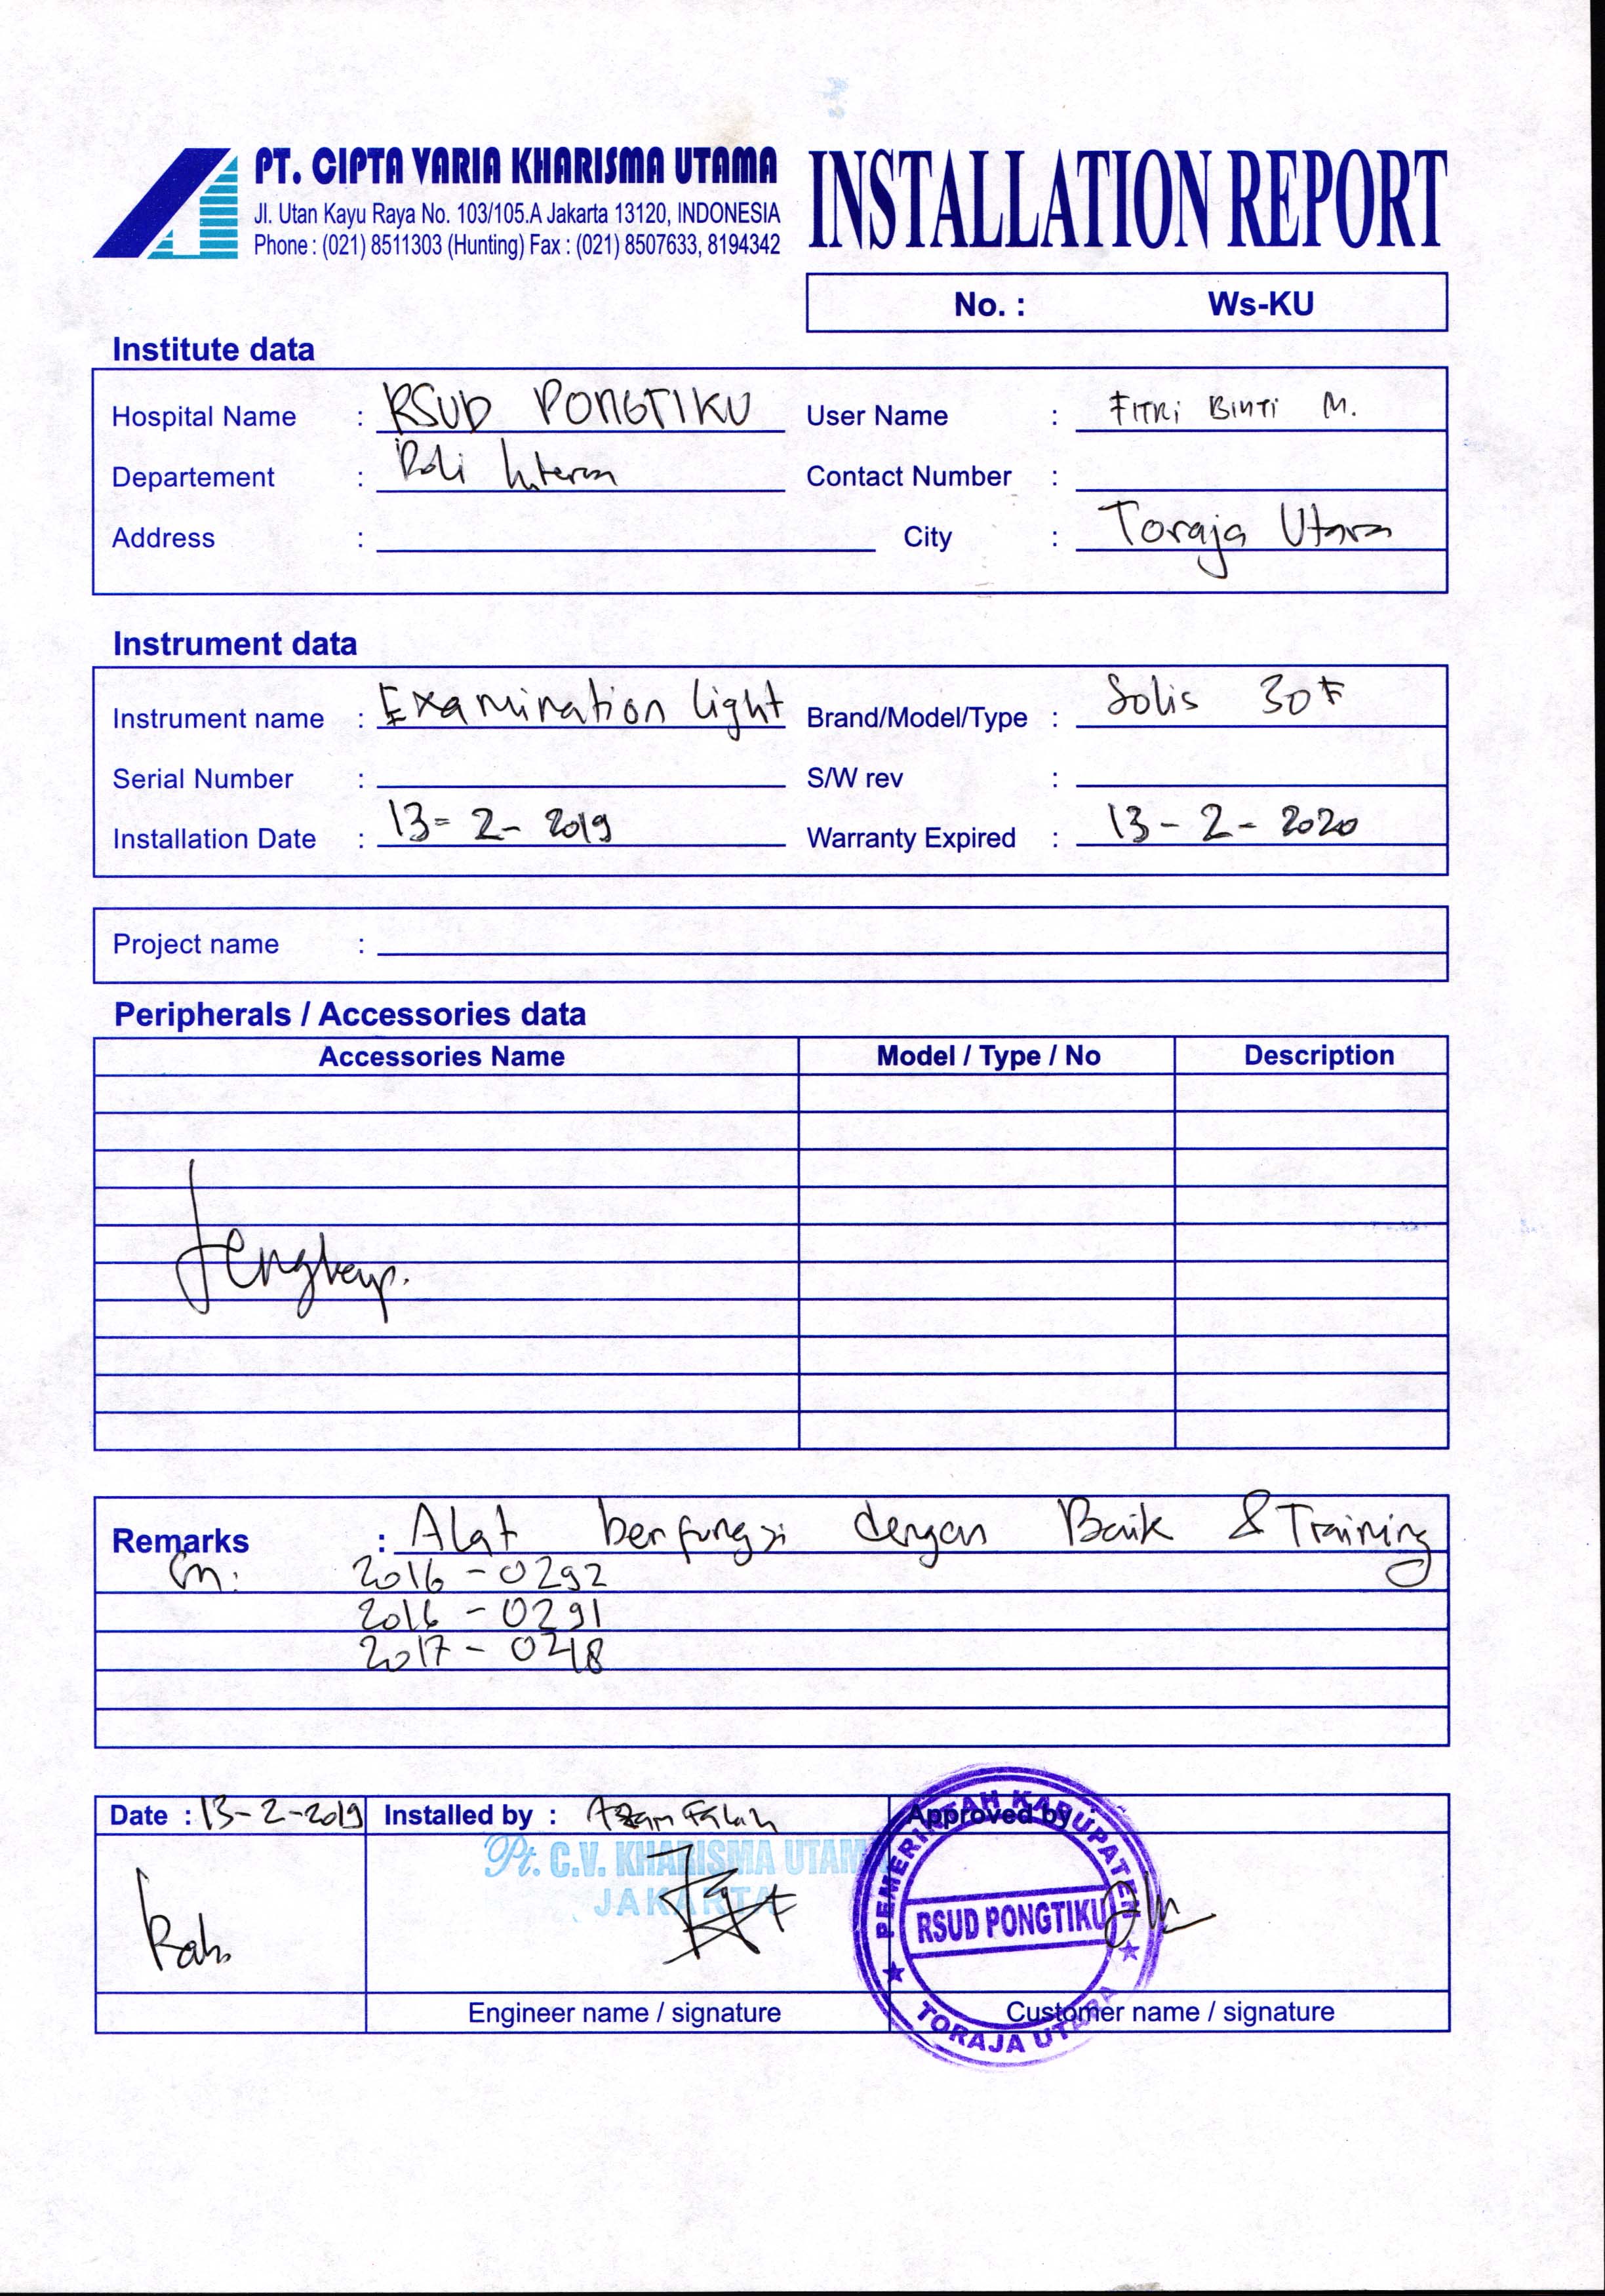 PT. CIPTA VARIA KHARISMA UTAMA
Jl. Utan Kayu Raya No. 103/105.A Jakarta 13120, INDONESIA
Phone : (021) 8511303 (Hunting) Fax : (021) 8507633, 8194342
INSTALLATION REPORT
No. : Ws-KU
Institute data
Hospital Name : RSUD PONGTIKU User Name : FITRI BINTI M.
Departement : Poli Interna Contact Number :
Address : City : Toraja Utara
Instrument data
Instrument name : Examination light Brand/Model/Type : Solis 30F
Serial Number : S/W rev :
Installation Date : 13-2-2019 Warranty Expired : 13-2-2020
Project name :
Peripherals / Accessories data
Accessories Name Model / Type / No Description
Lengkap.
Remarks : Alat berfungsi dengan Baik & Training
Sn: 2016-0292
2016-0291
2017-0218
Date : 13-2-2019 Installed by : Azam Falah Approved by :
Pt. C.V. KHARISMA UTAMA
JAKARTA
PEMERINTAH KABUPATEN
RSUD PONGTIKU
TORAJA UTARA
Engineer name / signature Customer name / signature